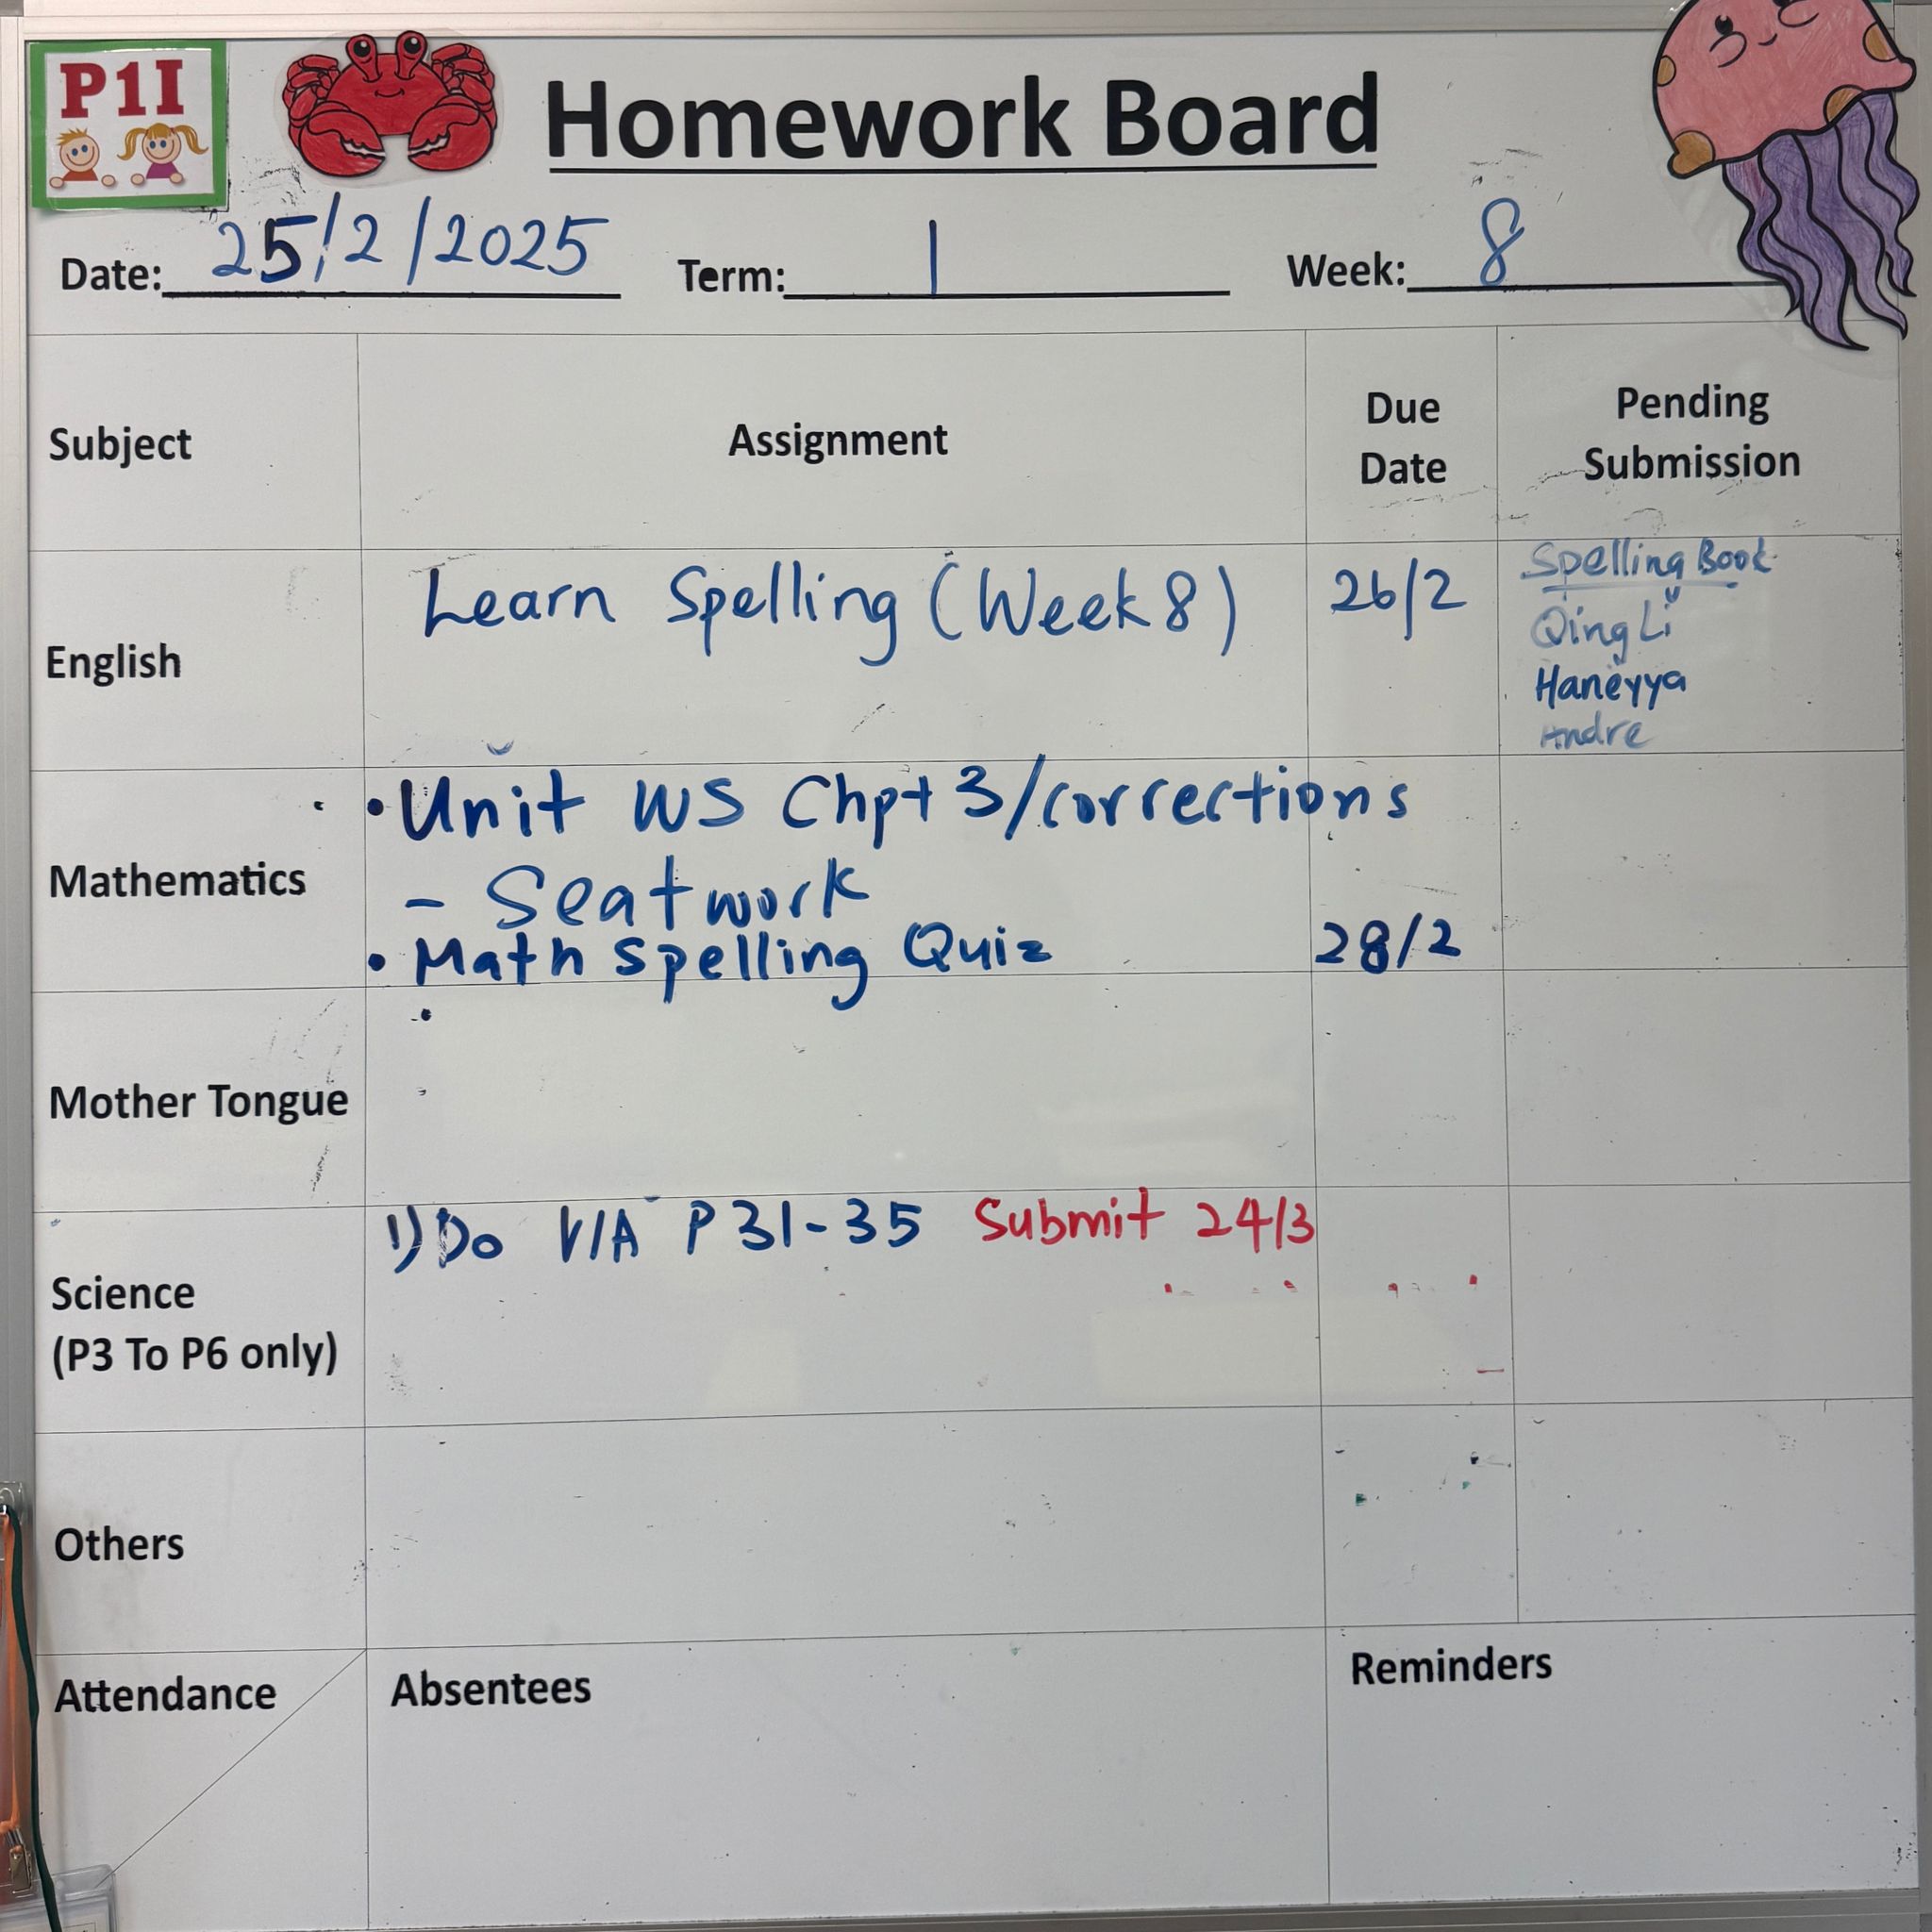 P1I
Homework Board
Date: 25/2/2025 Term: 1 Week: 8
Subject Assignment Due Date Pending Submission
English Learn Spelling (Week 8) 26/2 Spelling Book
Qing Li
Haneyya
Andre
Mathematics • Unit WS Chpt 3/corrections
- Seatwork
• Math Spelling Quiz 28/2
Mother Tongue
Science
(P3 To P6 only) 1) Do V/A P 31-35 Submit 24/3
Others
Attendance Absentees Reminders